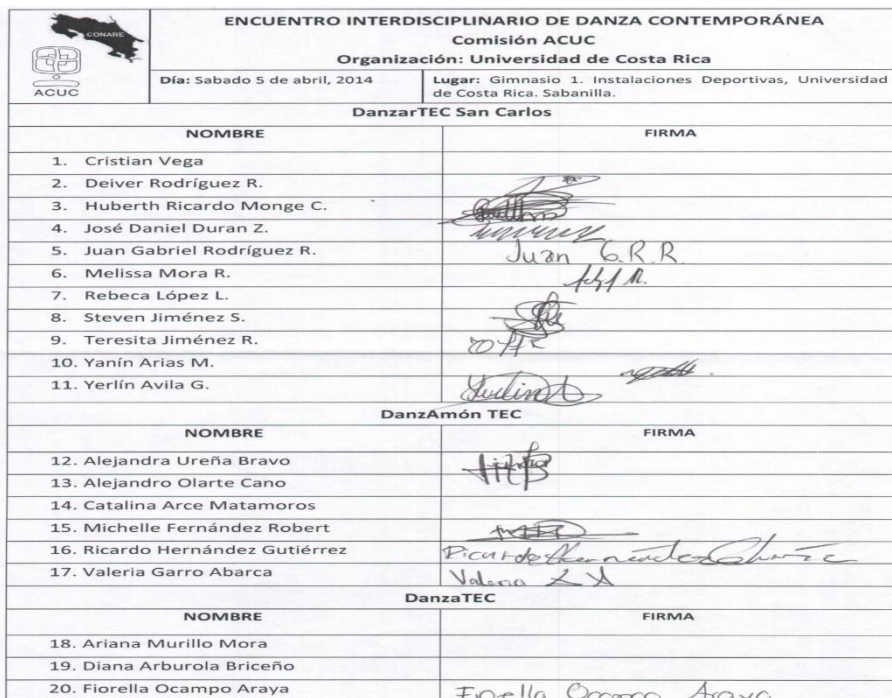 ENCUENTRO INTERDISCIPLINARIO DE DANZA CONTEMPORÁNEA
Comisión ACUC
Organización: Universidad de Costa Rica
CONARE
ACUC
Día: Sabado 5 de abril, 2014
Lugar: Gimnasio 1. Instalaciones Deportivas, Universidad
de Costa Rica. Sabanilla.
DanzarTEC San Carlos
NOMBRE FIRMA
1. Cristian Vega
2. Deiver Rodríguez R.
3. Huberth Ricardo Monge C.
4. José Daniel Duran Z.
5. Juan Gabriel Rodríguez R. Juan G.R.R.
6. Melissa Mora R.
7. Rebeca López L.
8. Steven Jiménez S.
9. Teresita Jiménez R.
10. Yanín Arias M.
11. Yerlín Avila G.
DanzAmón TEC
NOMBRE FIRMA
12. Alejandra Ureña Bravo
13. Alejandro Olarte Cano
14. Catalina Arce Matamoros
15. Michelle Fernández Robert
16. Ricardo Hernández Gutiérrez Ricardo
17. Valeria Garro Abarca Valeria
DanzaTEC
NOMBRE FIRMA
18. Ariana Murillo Mora
19. Diana Arburola Briceño
20. Fiorella Ocampo Araya Fiorella Ocampo Araya